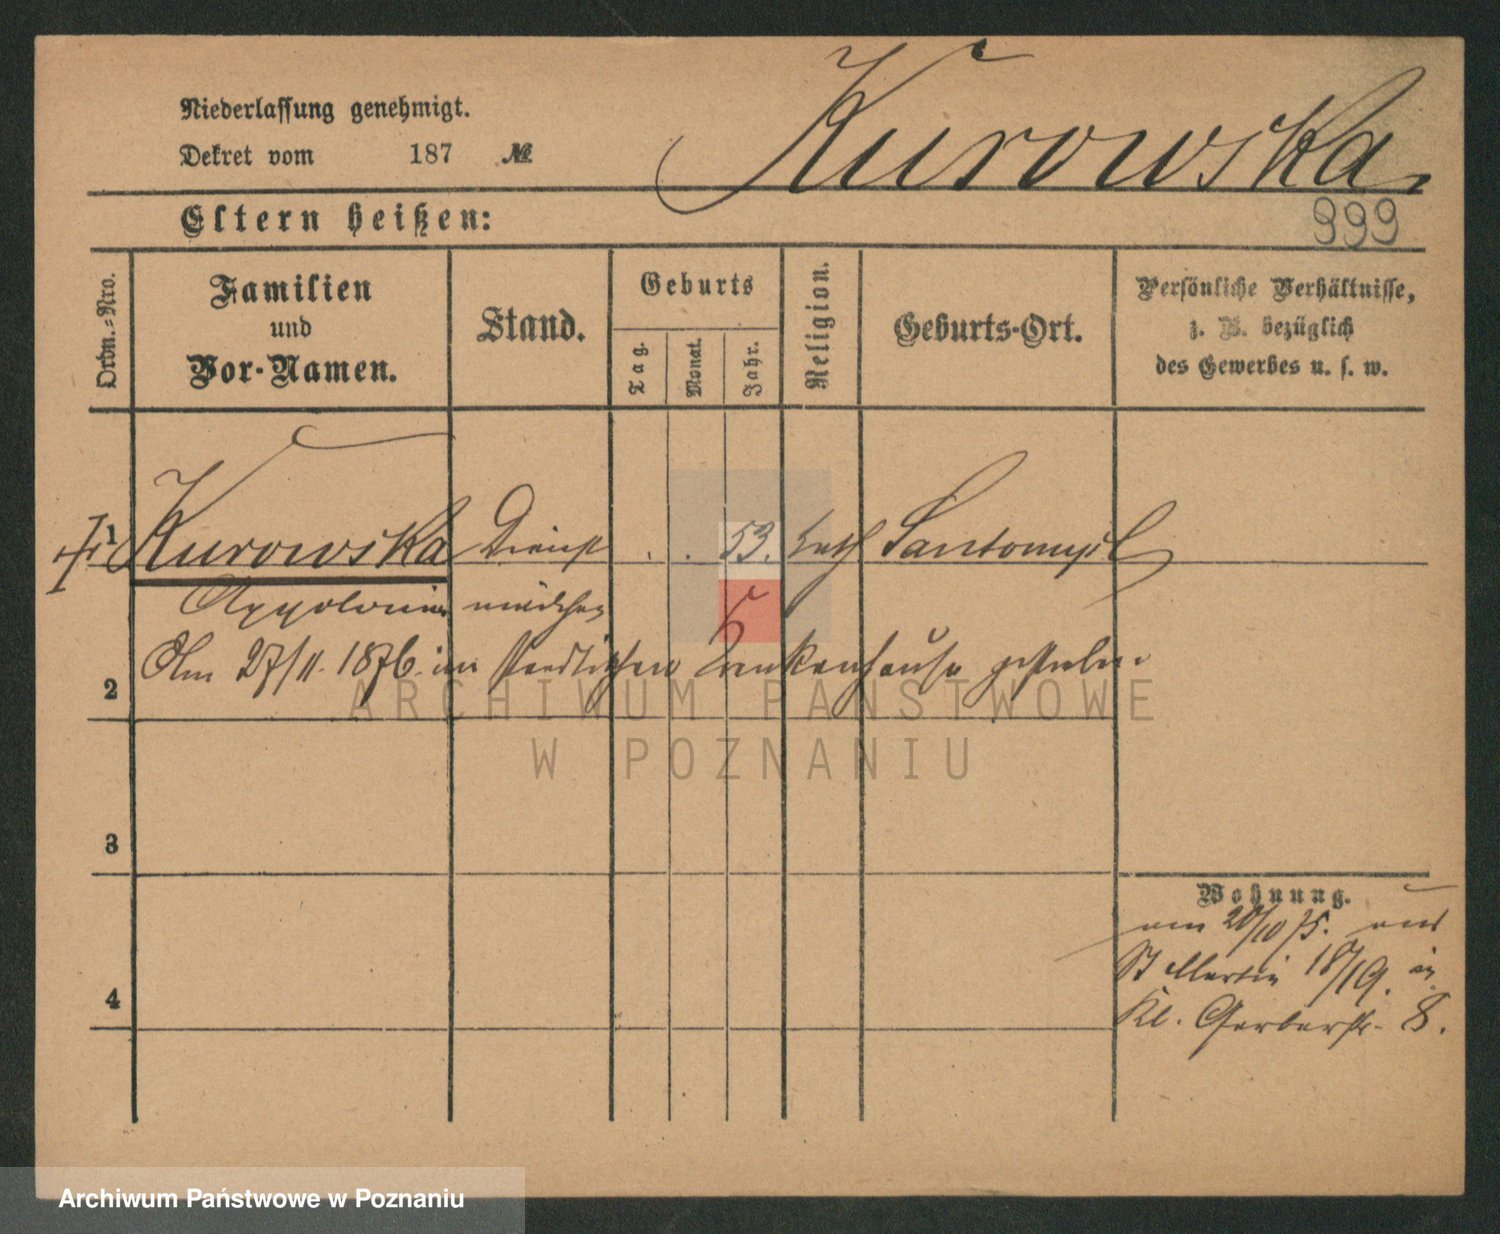 Niederlassung genehmigt.
Dekret vom 187 №
Kurowska
Eltern heißen:
999
Ordn.-Nro.
Familien und Vor-Namen.
Stand.
Geburts
Tag.
Monat.
Jahr.
Religion.
Geburts-Ort.
Persönliche Verhältnisse,
z. B. bezüglich
des Gewerbes u. s. w.
1 Kurowska Dienst . . 53. kath Santomysl
Appolonia mädchen
Am 27/11. 1876. im städtischen Krankenhause gestorben
2
3
4
Wohnung.
am 20/10 75. aus
St Martin 18/19. in
Kl. Gerberstr. 8.
ARCHIWUM PAŃSTWOWE
W POZNANIU
Archiwum Państwowe w Poznaniu